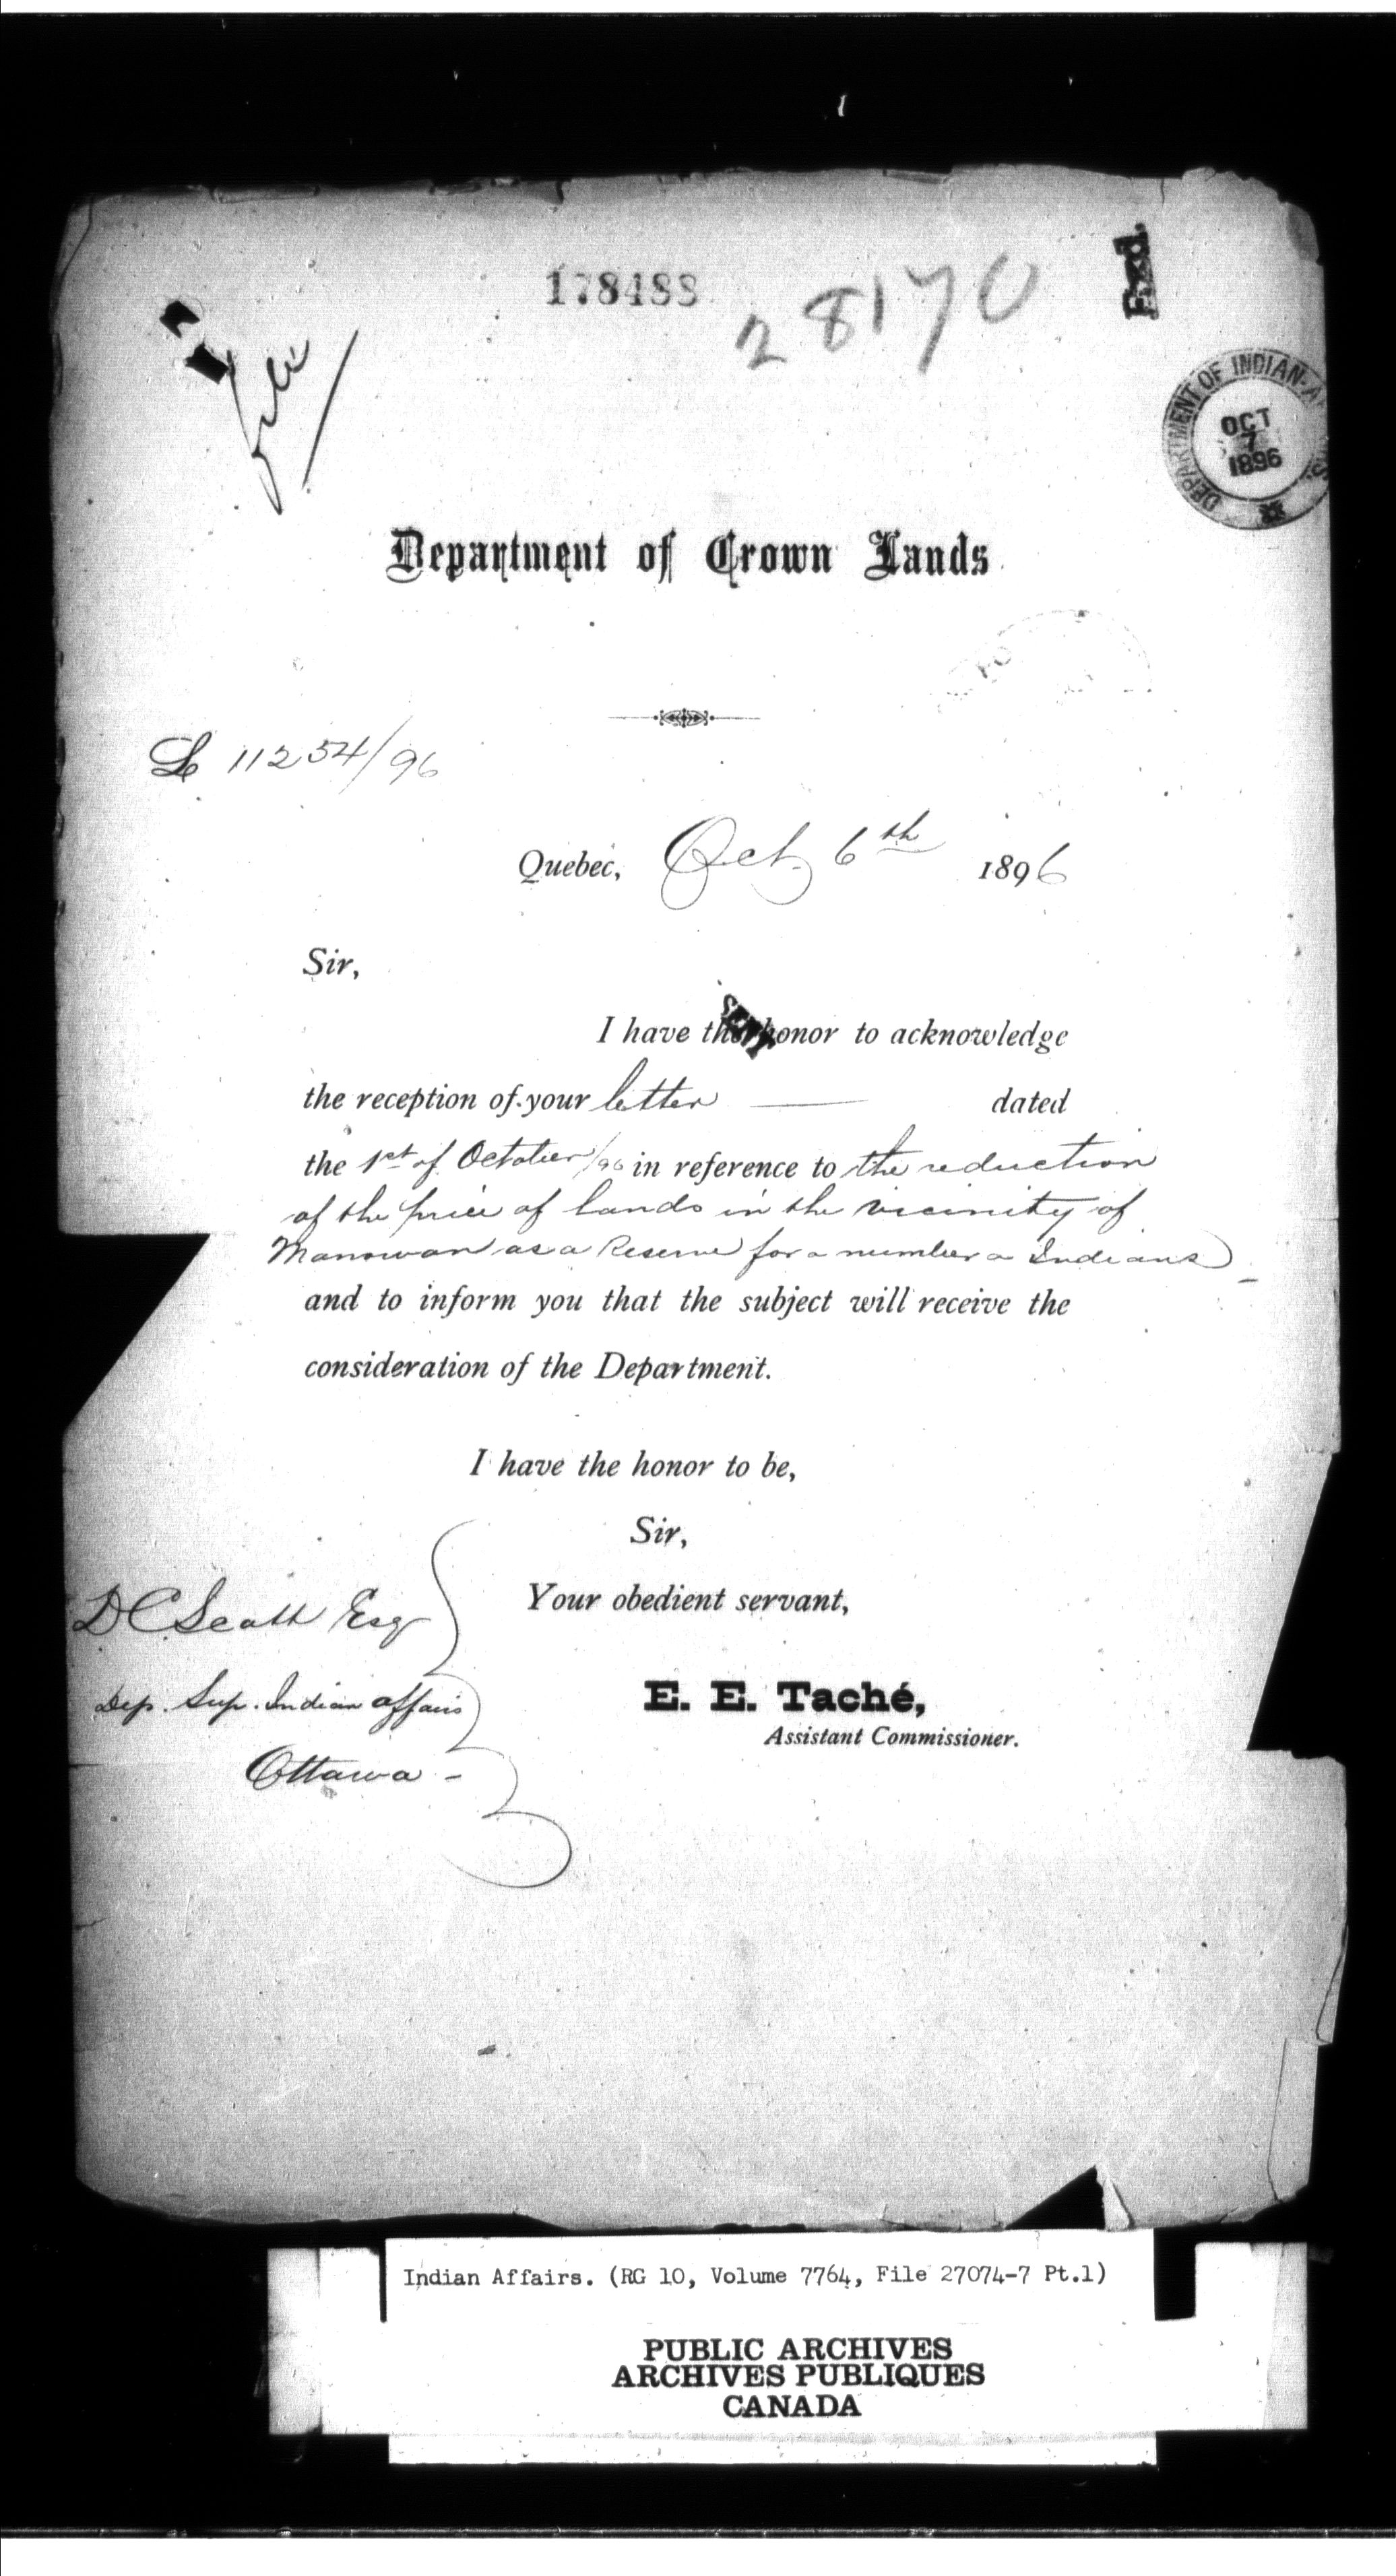 178488
28170
file
DEPARTMENT OF INDIAN A
OCT
7
1896
Department of Crown Lands
L 11254/96
Quebec, Oct. 6th 1896
Sir,
I have the honor to acknowledge
the reception of your letter dated
the 1st of October/96 in reference to the reduction
of the price of lands in the vicinity of
Manowan as a Reserve for a number a Indians
and to inform you that the subject will receive the
consideration of the Department.
I have the honor to be,
Sir,
Your obedient servant,
D C Scott Esq
Dep. Sup. Indian affairs
Ottawa -
E. E. Taché,
Assistant Commissioner.
Indian Affairs. (RG 10, Volume 7764, File 27074-7 Pt.1)
PUBLIC ARCHIVES
ARCHIVES PUBLIQUES
CANADA